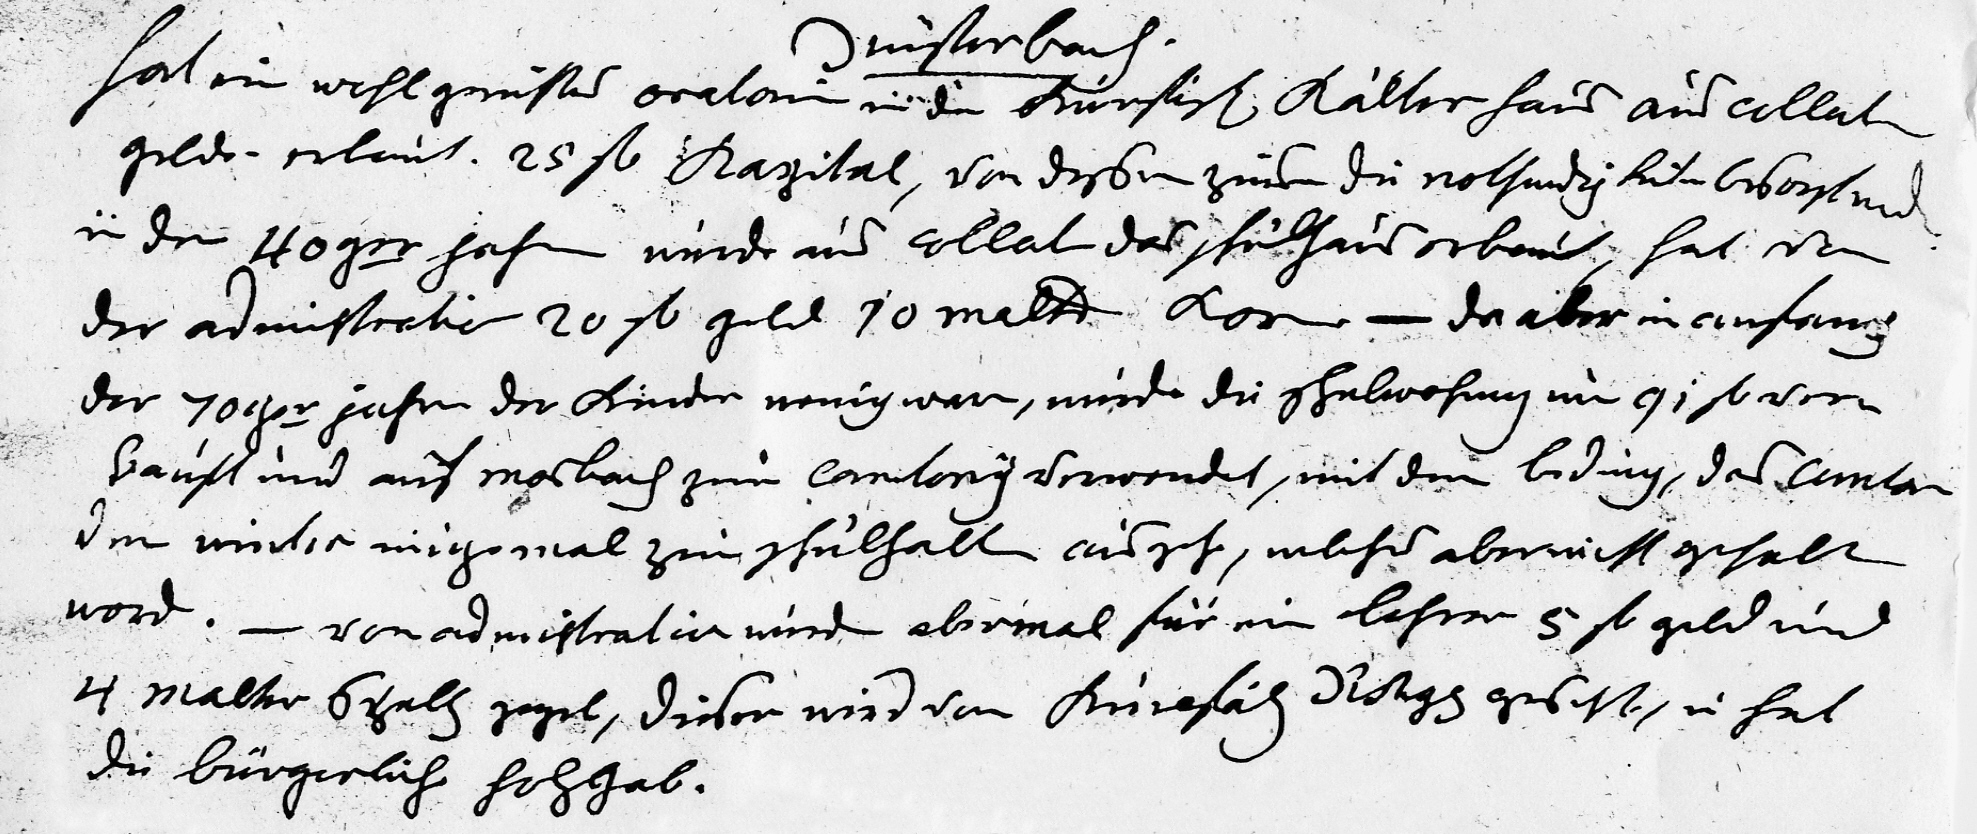 Düsterbach.
hat ein wohl gerüstes oratorium in der Kurpfälz. Kälter haus aus collat
gelder erbaut. 25 fl Kapital, von deßen zinsen die nothwendigkeiten besorgt werd.
in den 40ger jahren wurde aus collat das schulhaus erbaut, hat von
der administratio 20 fl geld 10 malter Korn — da aber in anfang
der 70ger jahren der Kinder wenig waren, wurde die schulwohnung um 91 fl ver
kauft und auf mosbach zur cantorey verwendet, mit dem beding, das Cantor
den winter einigemal zum schulhalten ausgehe, welches aber nicht gehalten
word. — von administration wurde abermal für ein lehrer 5 fl geld und
4 malter Spelz gegeb, dieser wird von Kurpfälz gesetzt, u hat
die bürgerliche holzgab.